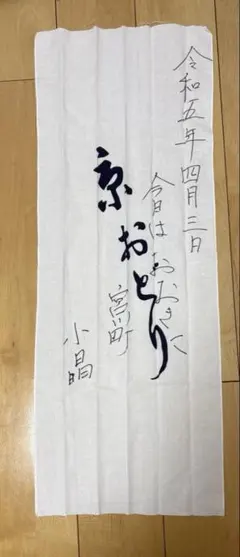 令和五年四月三日
今日はおおきに
京おどり
宮川町
小晶